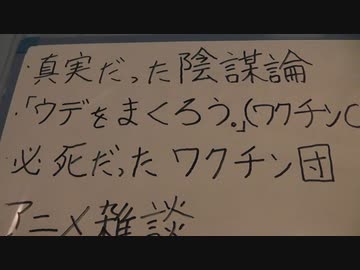 ・真実だった陰謀論
・「ウデをまくろう。」(ワクチンC
・必死だったワクチン団
アニメ雑談